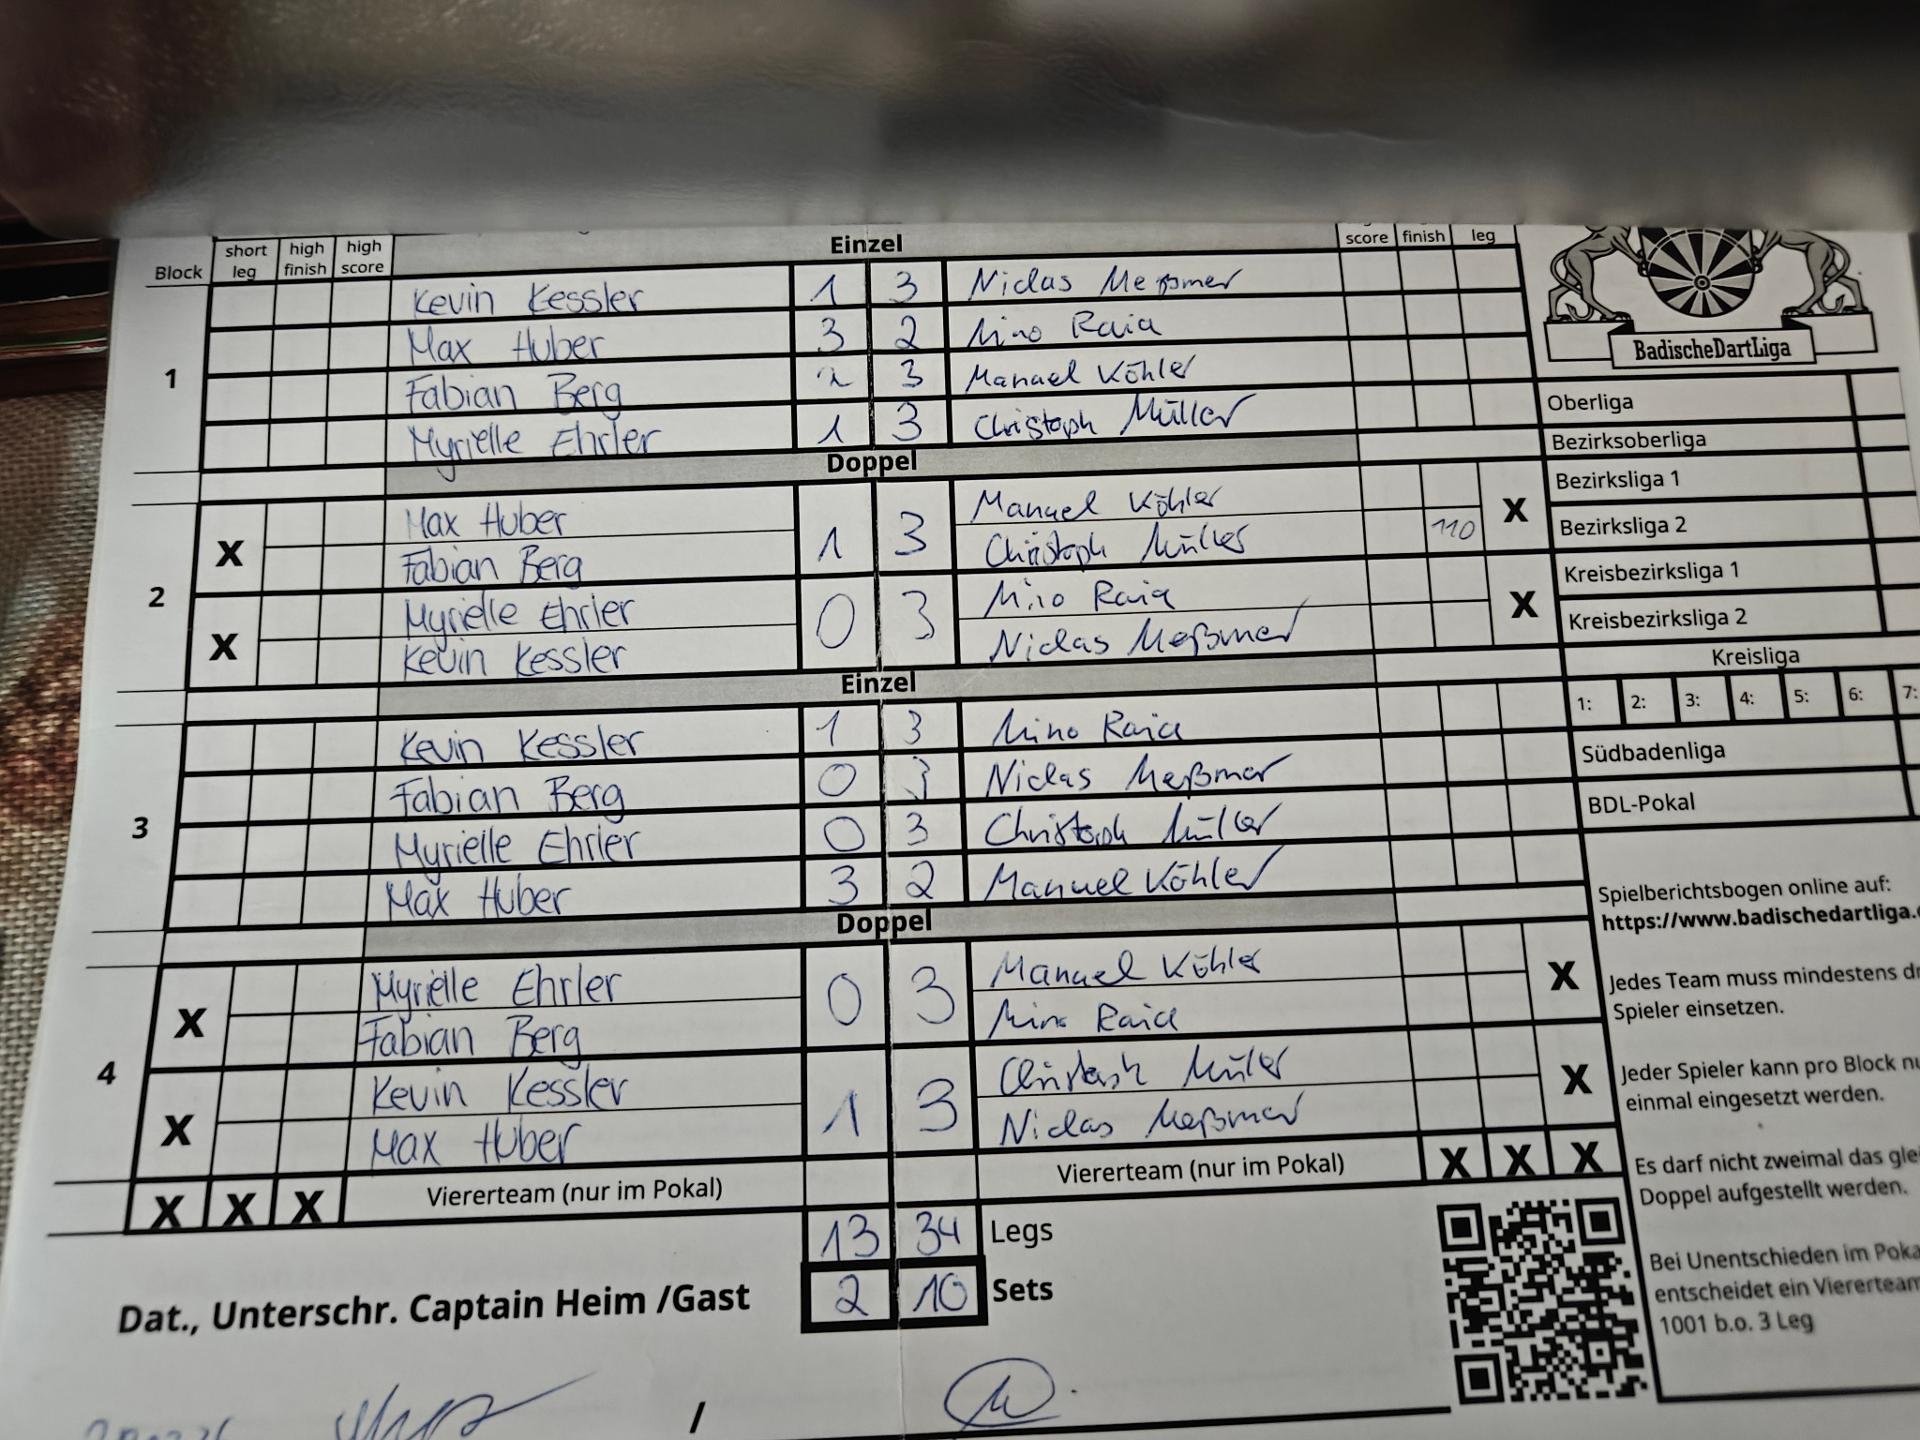 Block short leg high finish high score Einzel score finish leg
Kevin Kessler 1 3 Niclas Meßmer
Max Huber 3 2 Nino Raia
1 Fabian Berg 2 3 Manuel Köhler
Myrielle Ehrler 1 3 Christoph Müller
Doppel
Max Huber Manuel Köhler
X 1 3 X
Fabian Berg Christoph Müller 110
2
Myrielle Ehrler Nino Raia
X 0 3 X
Kevin Kessler Niclas Meßmer
Einzel
Kevin Kessler 1 3 Nino Raia
Fabian Berg 0 3 Niclas Meßmer
3 Myrielle Ehrler 0 3 Christoph Müller
Max Huber 3 2 Manuel Köhler
Doppel
Myrielle Ehrler Manuel Köhler
X 0 3 X
Fabian Berg Nino Raia
4
Kevin Kessler Christoph Müller
X 1 3 X
Max Huber Niclas Meßmer
X X X Viererteam (nur im Pokal) Viererteam (nur im Pokal) X X X
13 34 Legs
Dat., Unterschr. Captain Heim /Gast 2 10 Sets
/
BadischeDartLiga
Oberliga
Bezirksoberliga
Bezirksliga 1
Bezirksliga 2
Kreisbezirksliga 1
Kreisbezirksliga 2
Kreisliga
1: 2: 3: 4: 5: 6: 7:
Südbadenliga
BDL-Pokal
Spielberichtsbogen online auf:
https://www.badischedartliga.
Jedes Team muss mindestens
Spieler einsetzen.
Jeder Spieler kann pro Block
einmal eingesetzt werden.
Es darf nicht zweimal das
Doppel aufgestellt werden.
Bei Unentschieden im
entscheidet ein Viererteam
1001 b.o. 3 Leg